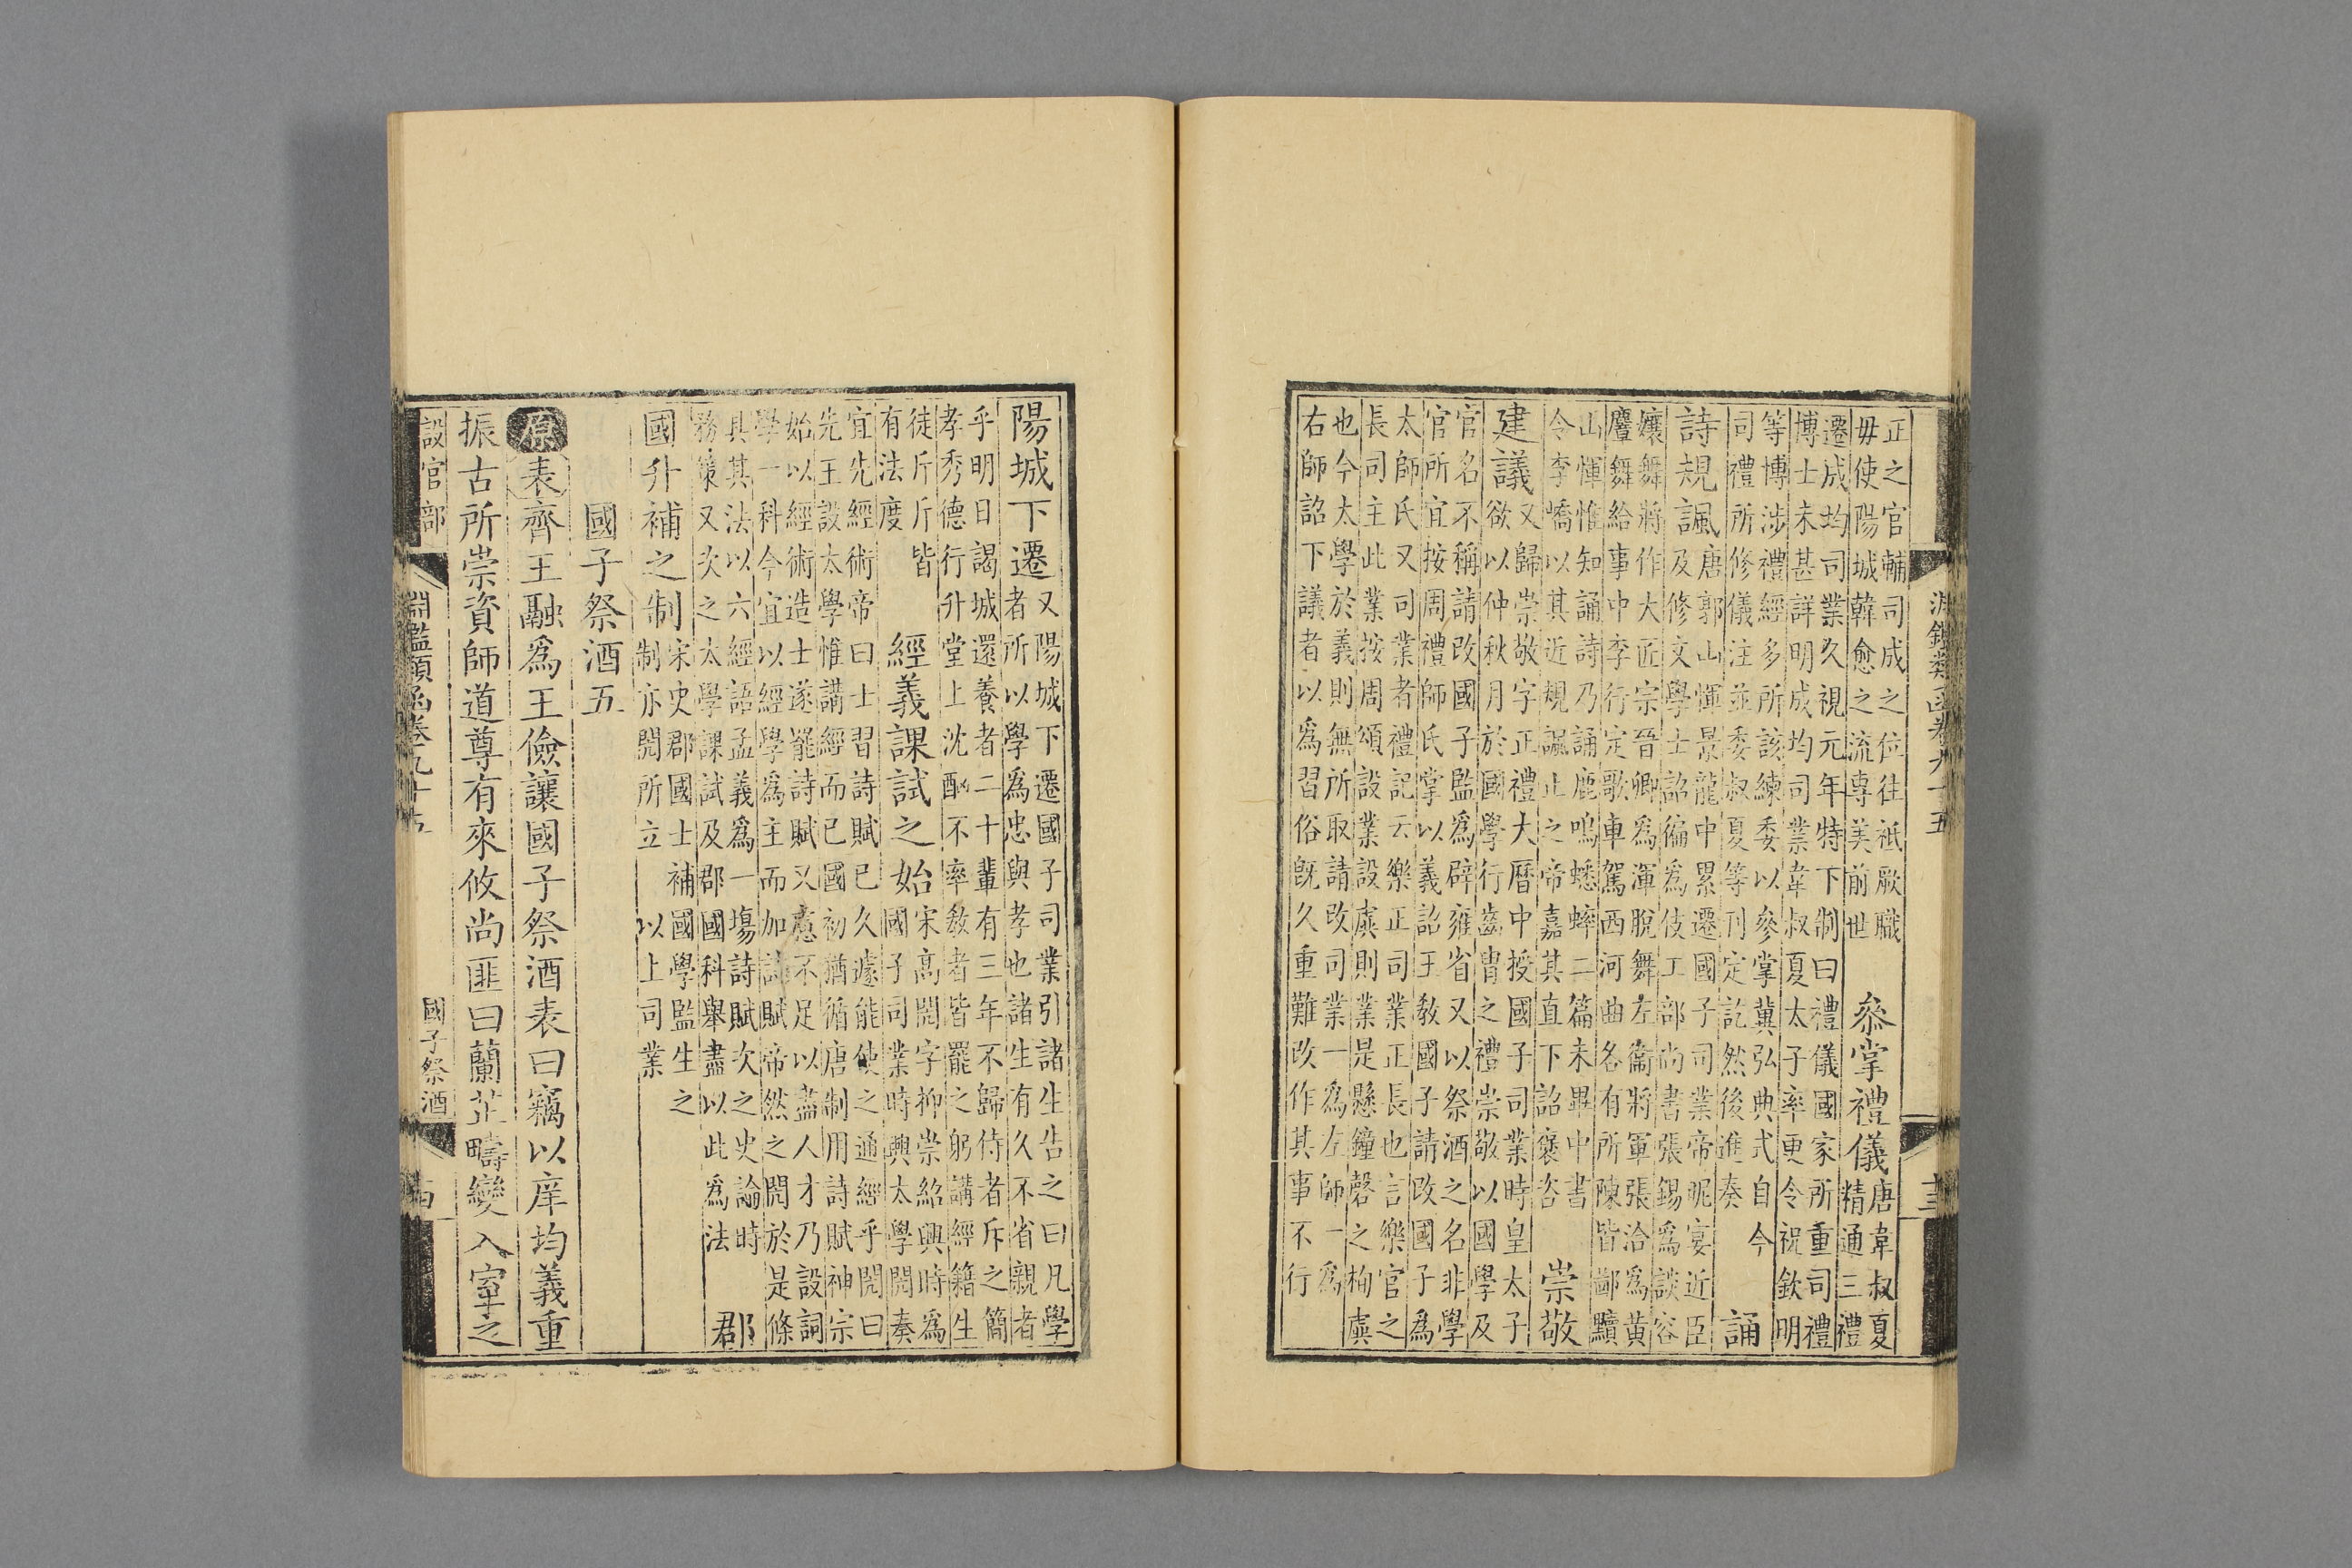 正之官輔司成之位往祗厥職
毋使陽城韓愈之流專美前世
叅掌禮儀
唐韋叔夏
精通三禮
遷成均司業久視元年特下制曰禮儀國家所重司禮
博士未甚詳明成均司業韋叔夏太子率更令祝欽明
等博涉禮經多所該練委以參掌冀弘典式自今
司禮所修儀注並委叔夏等刊定訖然後進奏
誦
詩規諷
唐郭山惲景龍中累遷國子司業帝昵宴近臣
及修文學士詔徧爲伎工部尚書張錫爲談容
孃舞將作大匠宗晉卿爲渾脫舞左衞將軍張洽爲黄
麞舞給事中李行定歌車駕西河曲各有所陳皆鄙黷
山惲惟知誦詩乃誦鹿鳴蟋蟀二篇未畢中書
令李嶠以其近規諷止之帝嘉其直下詔褒咨
崇敬
建議
又歸崇敬字正禮大曆中授國子司業時皇太子
欲以仲秋月於國學行齒胄之禮崇敬以國學及
官名不稱請改國子監爲辟雍省又以祭酒之名非學
官所宜按周禮師氏掌以義詔王教國子請改國子爲
太師氏又司業者禮記云樂正司業正長也言樂官之
長司主此業按周頌設業設虡則業是懸鐘磬之栒虡
也今太學於義則無所取請改司業一爲左師一爲
右師詔下議者以爲習俗旣久重難改作其事不行
淵鑑類函卷九十五
十三
陽城下遷
又陽城下遷國子司業引諸生告之曰凡學
者所以學爲忠與孝也諸生有久不省親者
乎明日謁城還養者二十輩有三年不歸侍者斥之簡
孝秀德行升堂上沈酗不率教者皆罷之躬講經籍生
徒斤斤皆
有法度
經義課試之始
宋高閌字抑崇紹興時爲
國子司業時興太學閌奏
宜先經術帝曰士習詩賦已久遽能使之通經乎閌曰
先王設太學惟講經而已國初猶循唐制用詩賦神宗
始以經術造士遂罷詩賦又慮不足以盡人才乃設詞
學一科今宜以經學爲主而加詩賦帝然之閌於是條
其其法以六經語孟義爲一塲詩賦次之史論時
務策又次之太學課試及郡國科舉盡以此爲法
郡
國升補之制
宋史郡國士補國學監生之
制亦閌所立
以上司業
國子祭酒五
原表齊王融爲王儉讓國子祭酒表曰竊以庠均義重
振古所崇資師道尊有來攸尚匪曰蘭芷疇變入室之
設官部
淵鑑類函卷九十五
國子祭酒